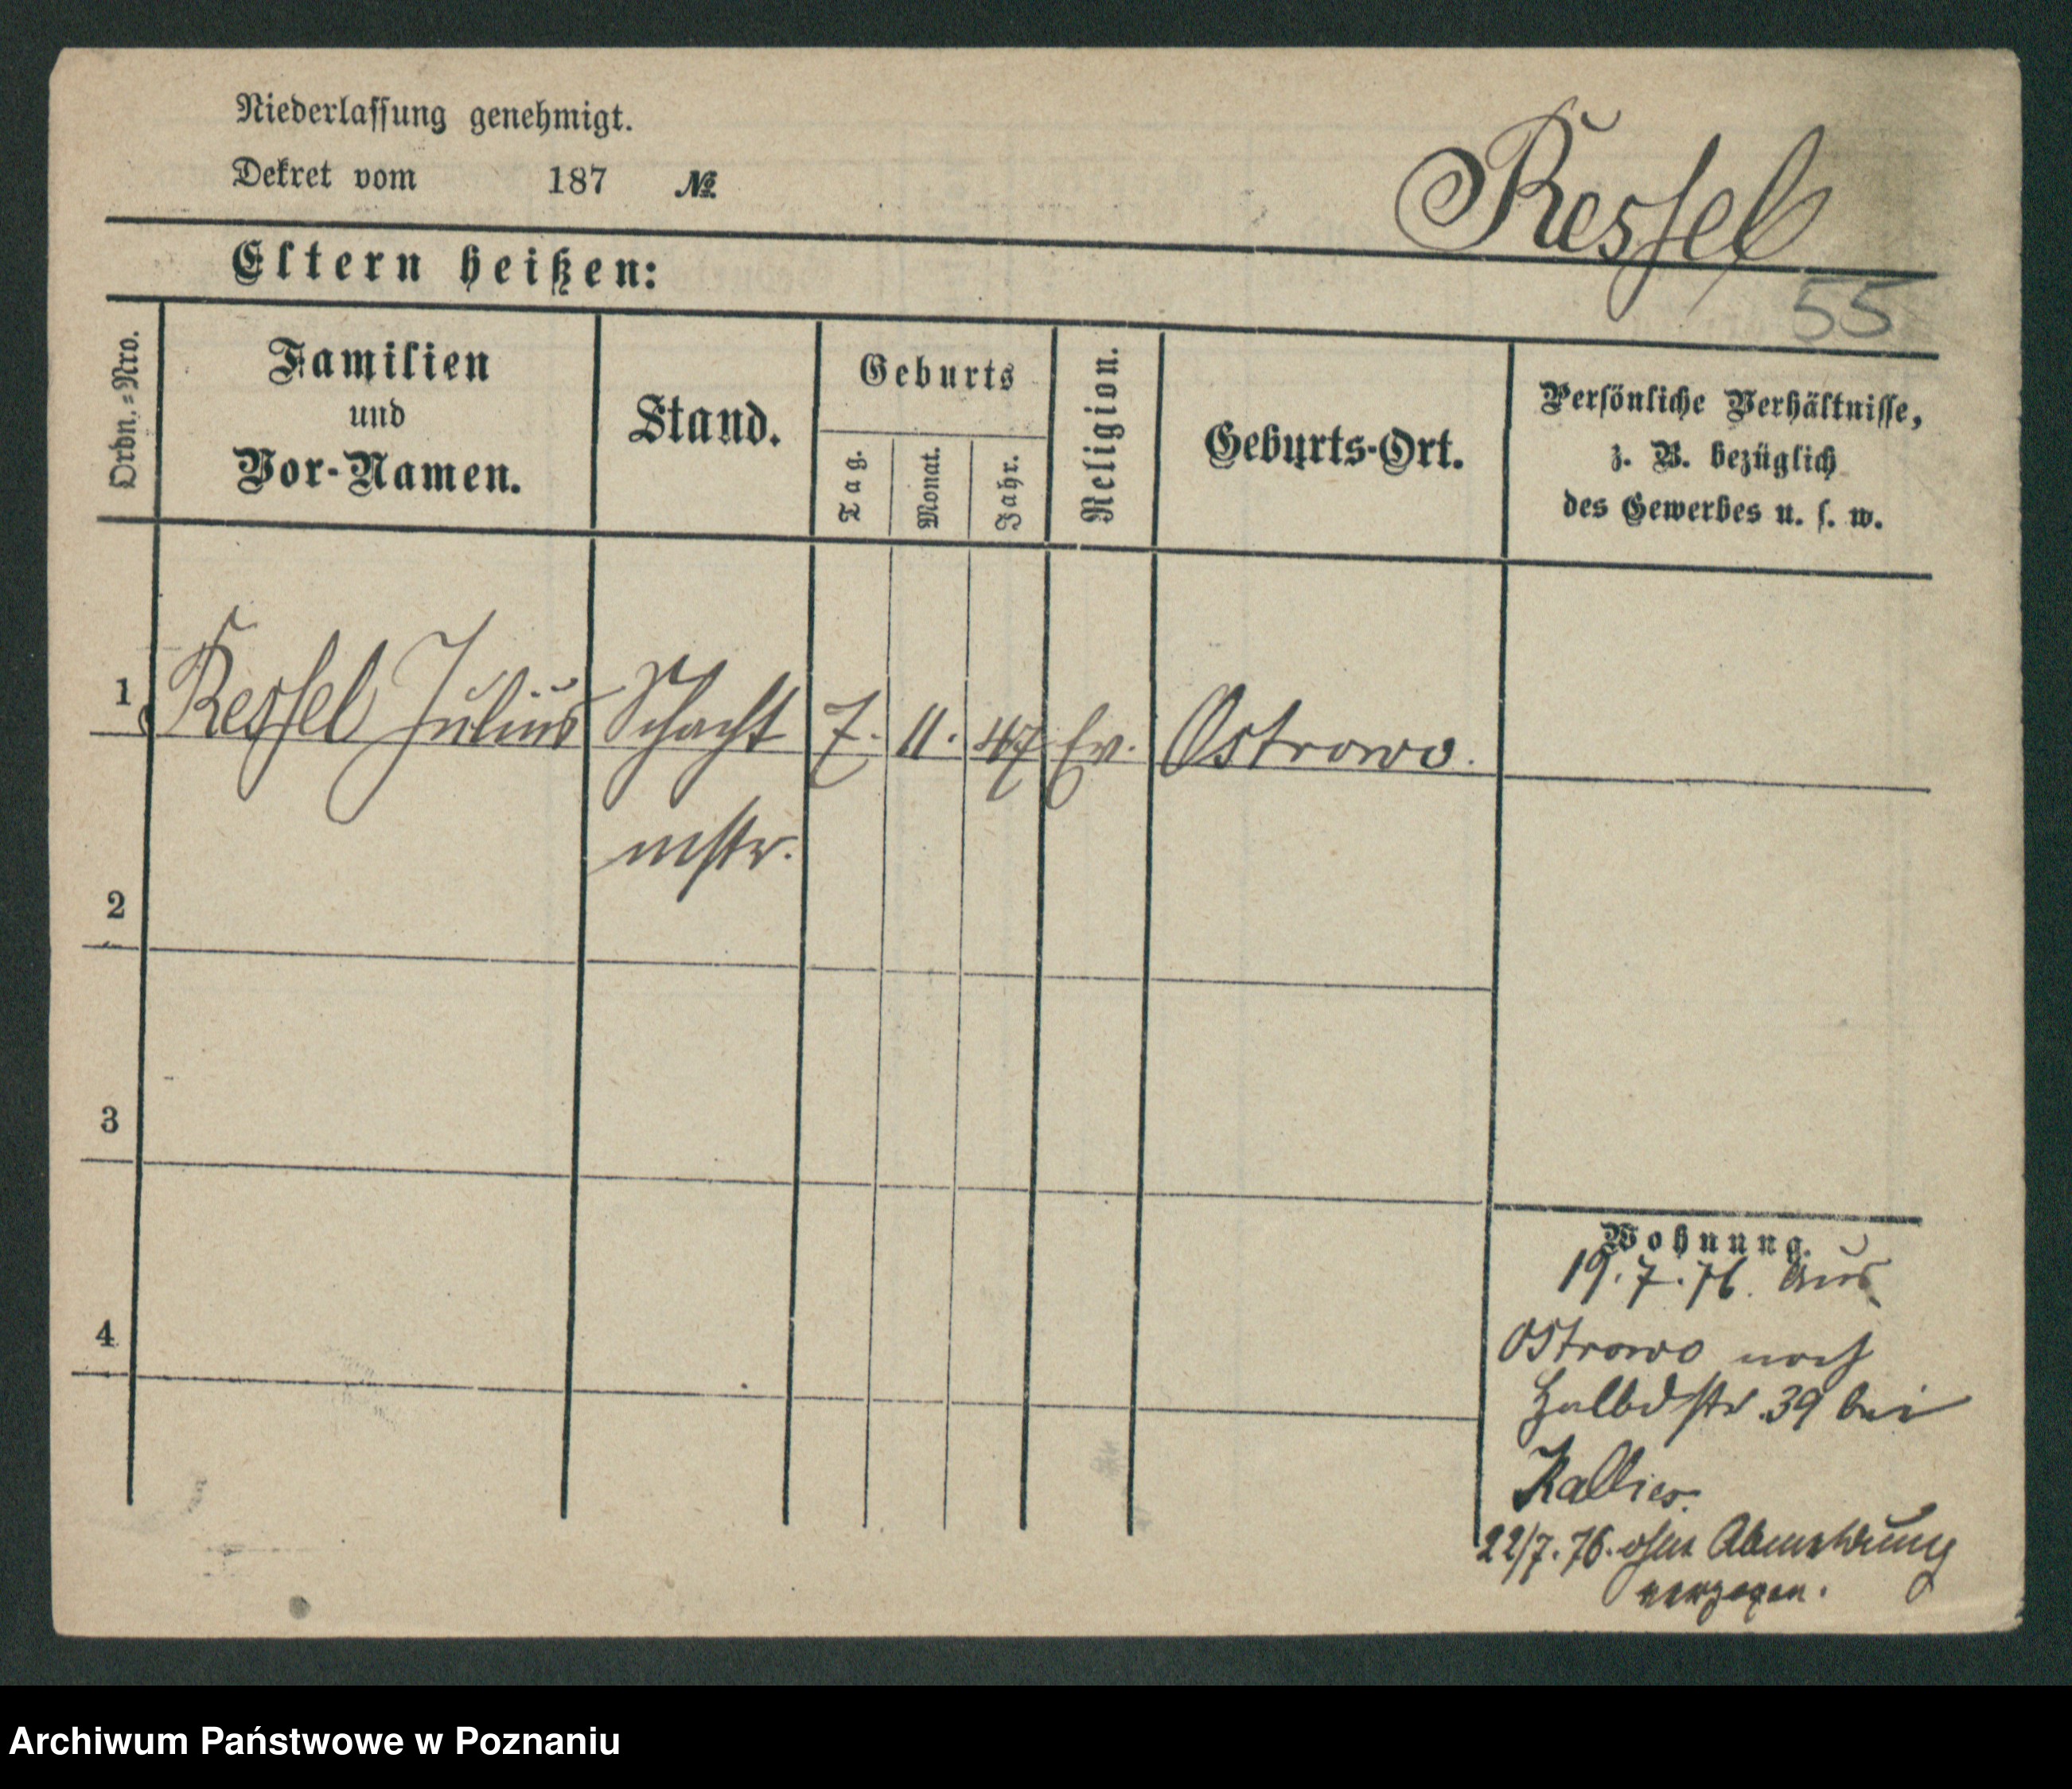 Niederlassung genehmigt.
Dekret vom 187 №
Kessel
Eltern heißen:
55
Ordn.=Nro.
Familien
und
Vor-Namen.
Stand.
Geburts
Tag.
Monat.
Jahr.
Religion.
Geburts-Ort.
Persönliche Verhältnisse,
z. B. bezüglich
des Gewerbes u. s. w.
1 Kessel Julius Schacht 7. 11. 47 Ev. Ostrowo.
mstr.
2
3
4
Wohnung.
19. 7. 76. aus
Ostrowo nach
Halbdstr. 39 bei
Kallies.
22/7. 76. ohne Abmeldung
verzogen.
Archiwum Państwowe w Poznaniu